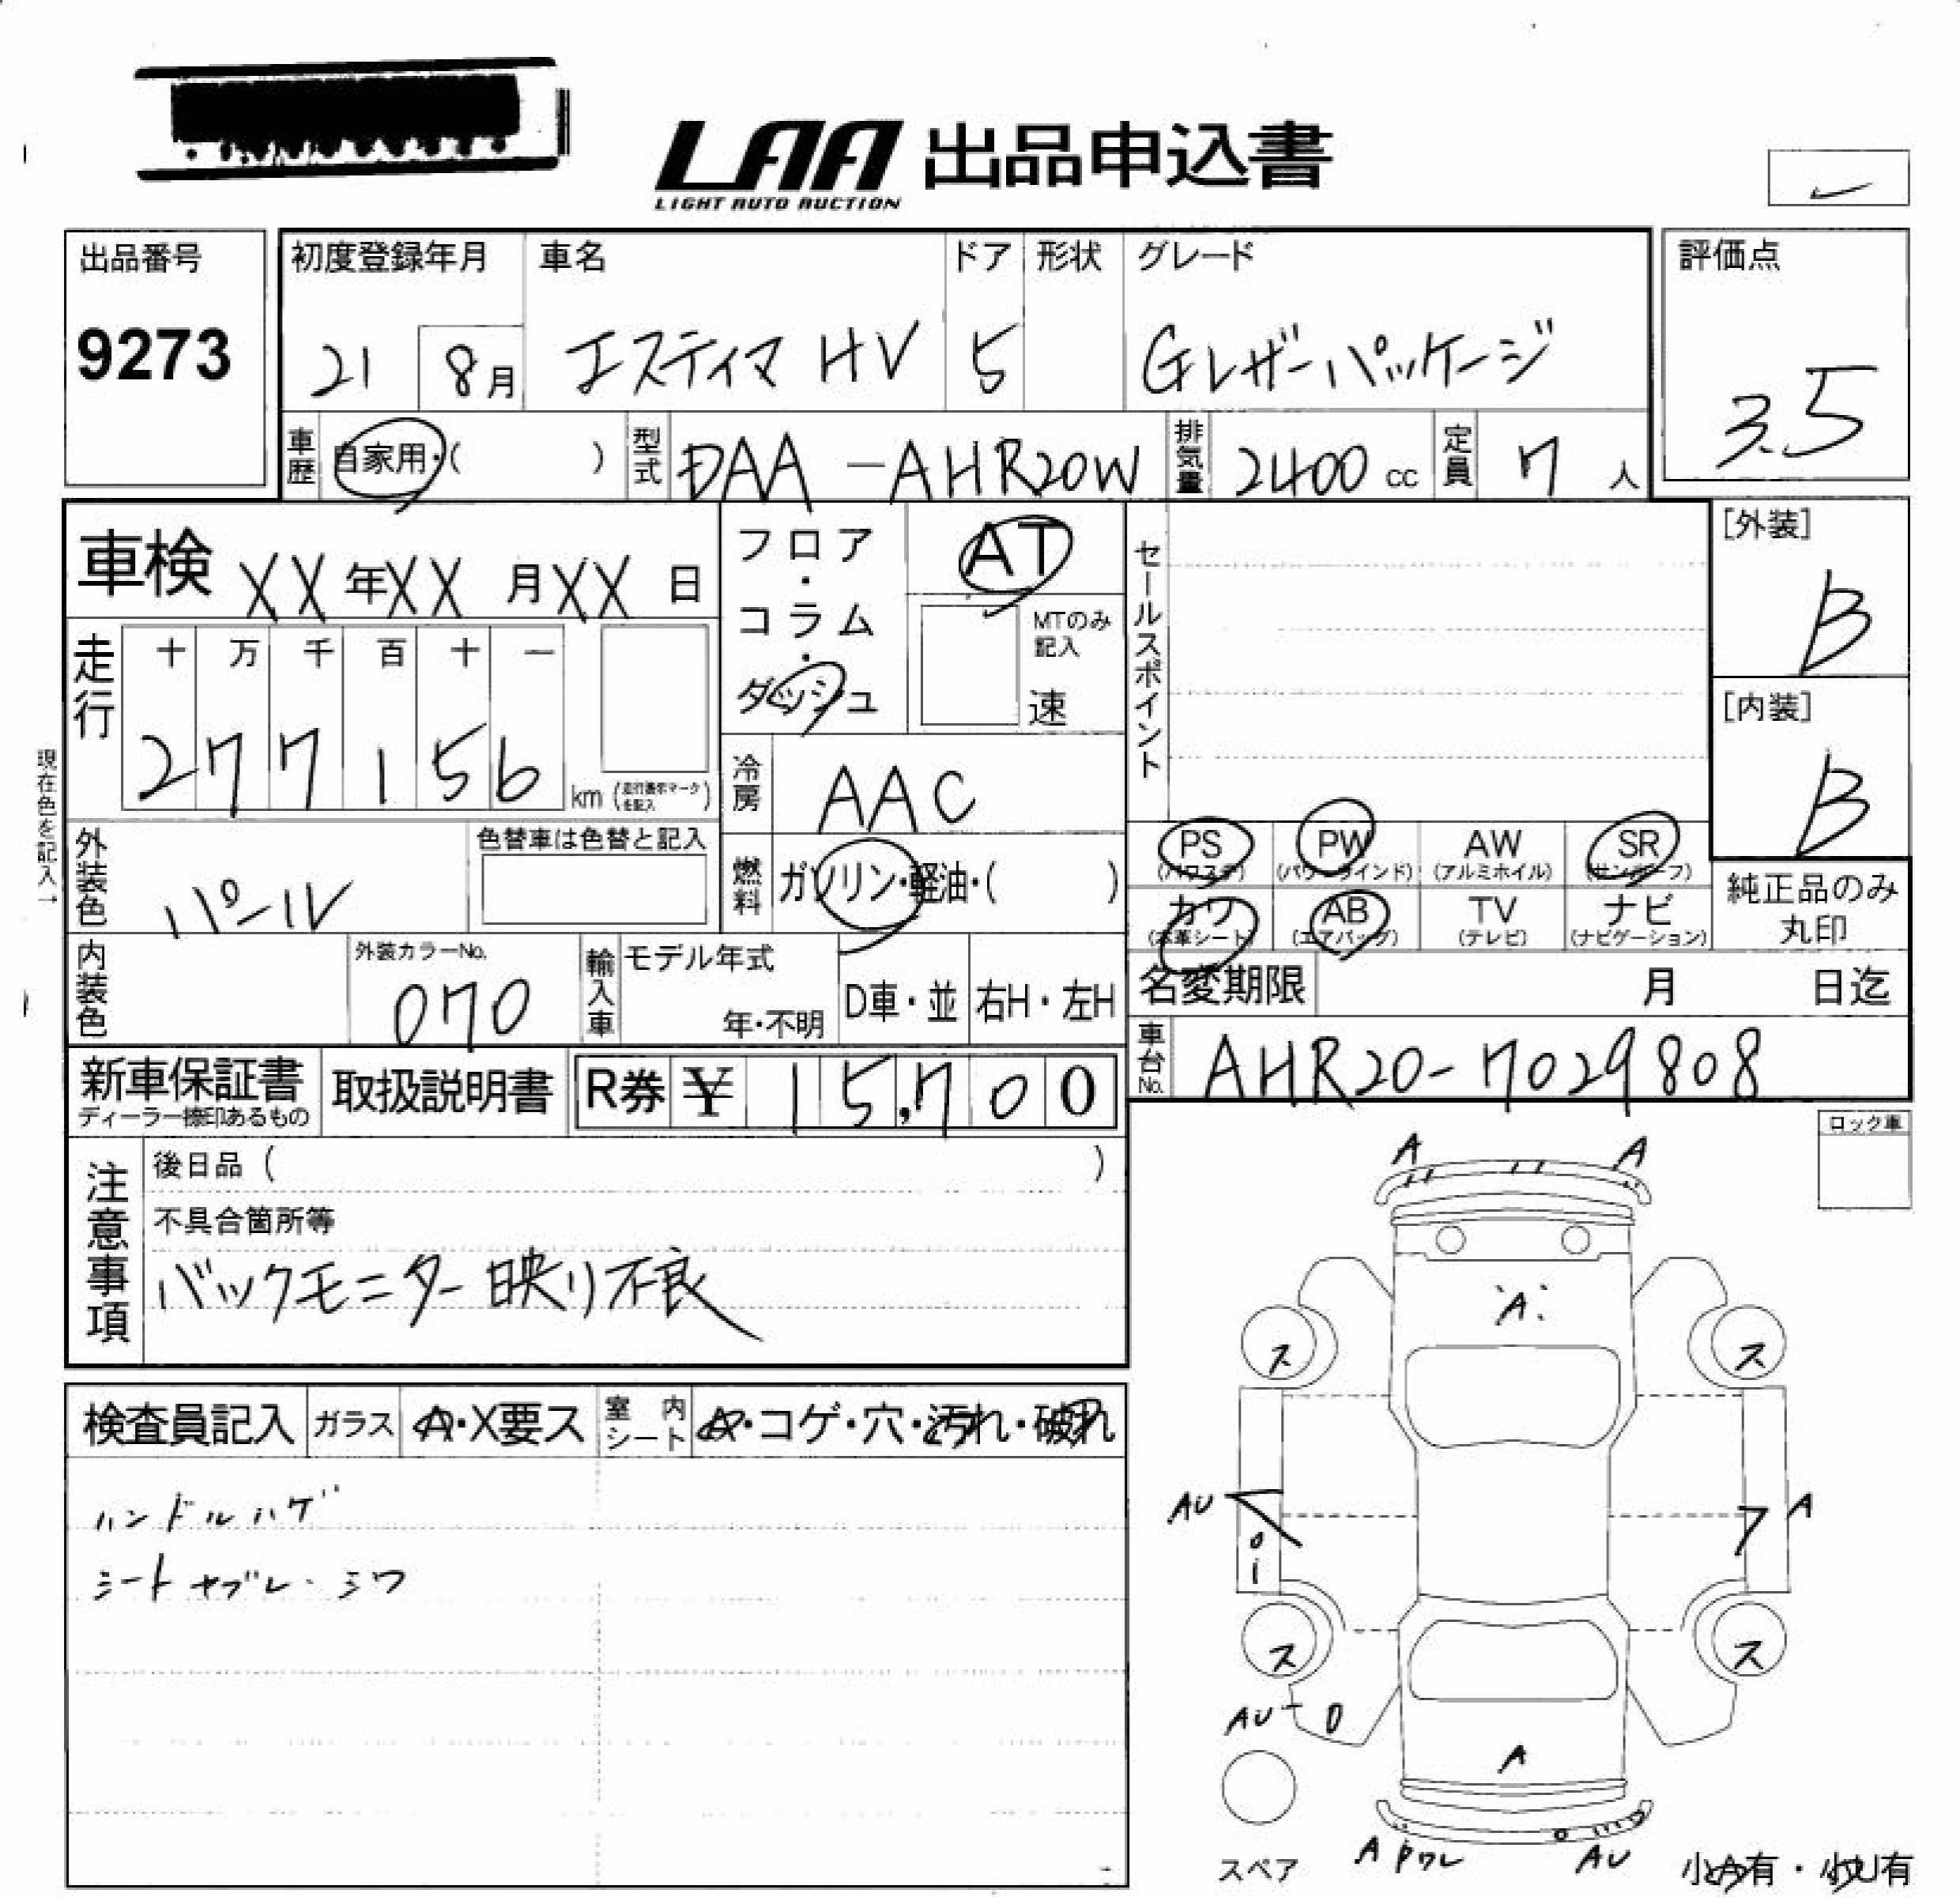 LAA 出品申込書
LIGHT AUTO AUCTION
出品番号
9273
初度登録年月 車名 ドア 形状 グレード
21 8月 エスティマ HV 5 Gレザーパッケージ
評価点
3.5
車歴 自家用・( ) 型式 DAA-AHR20W 排気量 2400 cc 定員 7 人
車検 XX年XX月XX日
フロア・コラム・ダッシュ
AT
MTのみ記入
速
セールスポイント
[外装]
B
[内装]
B
走行
十 万 千 百 十 一
2 7 7 1 5 6 km (走行表示マークを記入)
現在色を記入→
冷房 AAC
外装色 パール
色替車は色替と記入
燃料 ガソリン・軽油・( )
PS (パワステ) PW (パワーウインド) AW (アルミホイル) SR (サンルーフ)
カワ (本革シート) AB (エアバッグ) TV (テレビ) ナビ (ナビゲーション)
純正品のみ
丸印
内装色
外装カラーNo.
070
輸入車 モデル年式
年・不明 D車・並 右H・左H
名変期限 月 日迄
車台No. AHR20-7029808
新車保証書
ディーラー捺印あるもの
取扱説明書
R券 ¥ 15,700
注意事項
後日品 ( )
不具合箇所等
バックモニター 映り不良
ロック車
検査員記入 ガラス A・X要ス 室内シート A・コゲ・穴・汚れ・破れ
ハンドルハゲ
シートヤブレ・シワ
A A
A
ス ス
AU A
ス ス
AU
A
スペア
A Pワレ AU
小A有・小U有